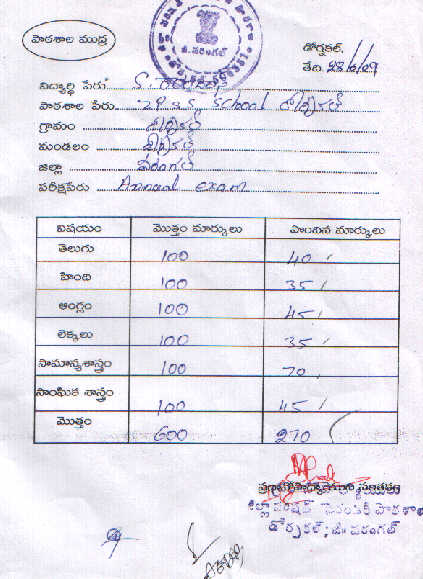 పాఠశాల ముద్ర
జి. వరంగల్
డోర్నకల్,
తేది 28/4/09
విద్యార్థి పేరు S.
పాఠశాల పేరు Z.P.S.S. School డోర్నకల్
గ్రామం డోర్నకల్
మండలం డోర్నకల్
జిల్లా వరంగల్
పరీక్షపేరు Annual exam
విషయం మొత్తం మార్కులు పొందిన మార్కులు
తెలుగు 100 40
హింది 100 35
ఆంగ్లం 100 45
లెక్కలు 100 35
సామాన్యశాస్త్రం 100 70
సాంఘిక శాస్త్రం 100 45
మొత్తం 600 270
జిల్లా పరిషత్ సెకండరీ పాఠశాల
డోర్నకల్, జి॥ వరంగల్